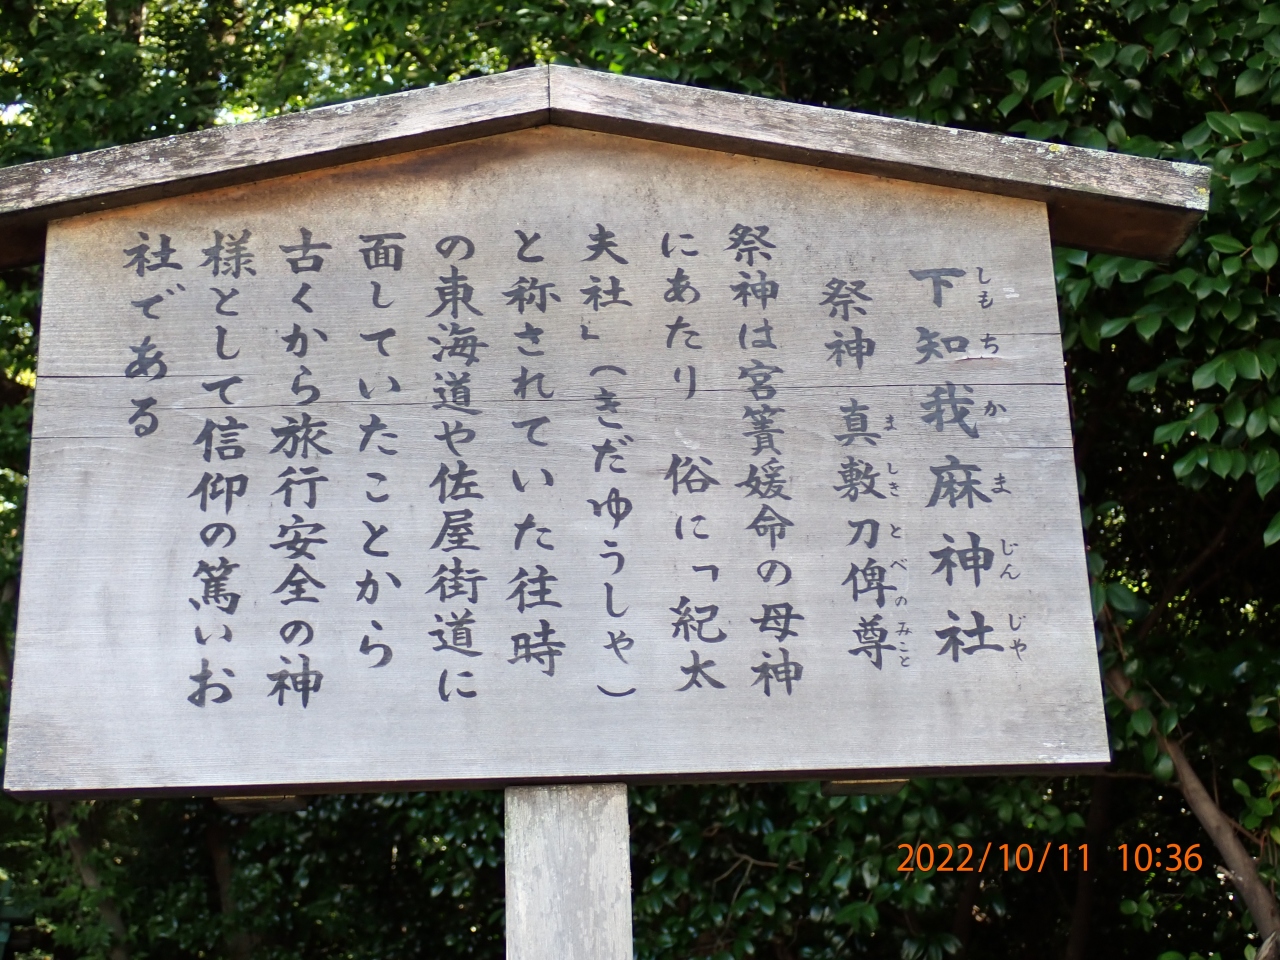 下知我麻神社
しもちかまじんじゃ
祭神 真敷刀俾尊
ましきとべのみこと
祭神は宮簀媛命の母神
にあたり 俗に「紀太
夫社」(きだゆうしゃ)
と称されていた往時
の東海道や佐屋街道に
面していたことから
古くから旅行安全の神
様として信仰の篤いお
社である
2022/10/11 10:36